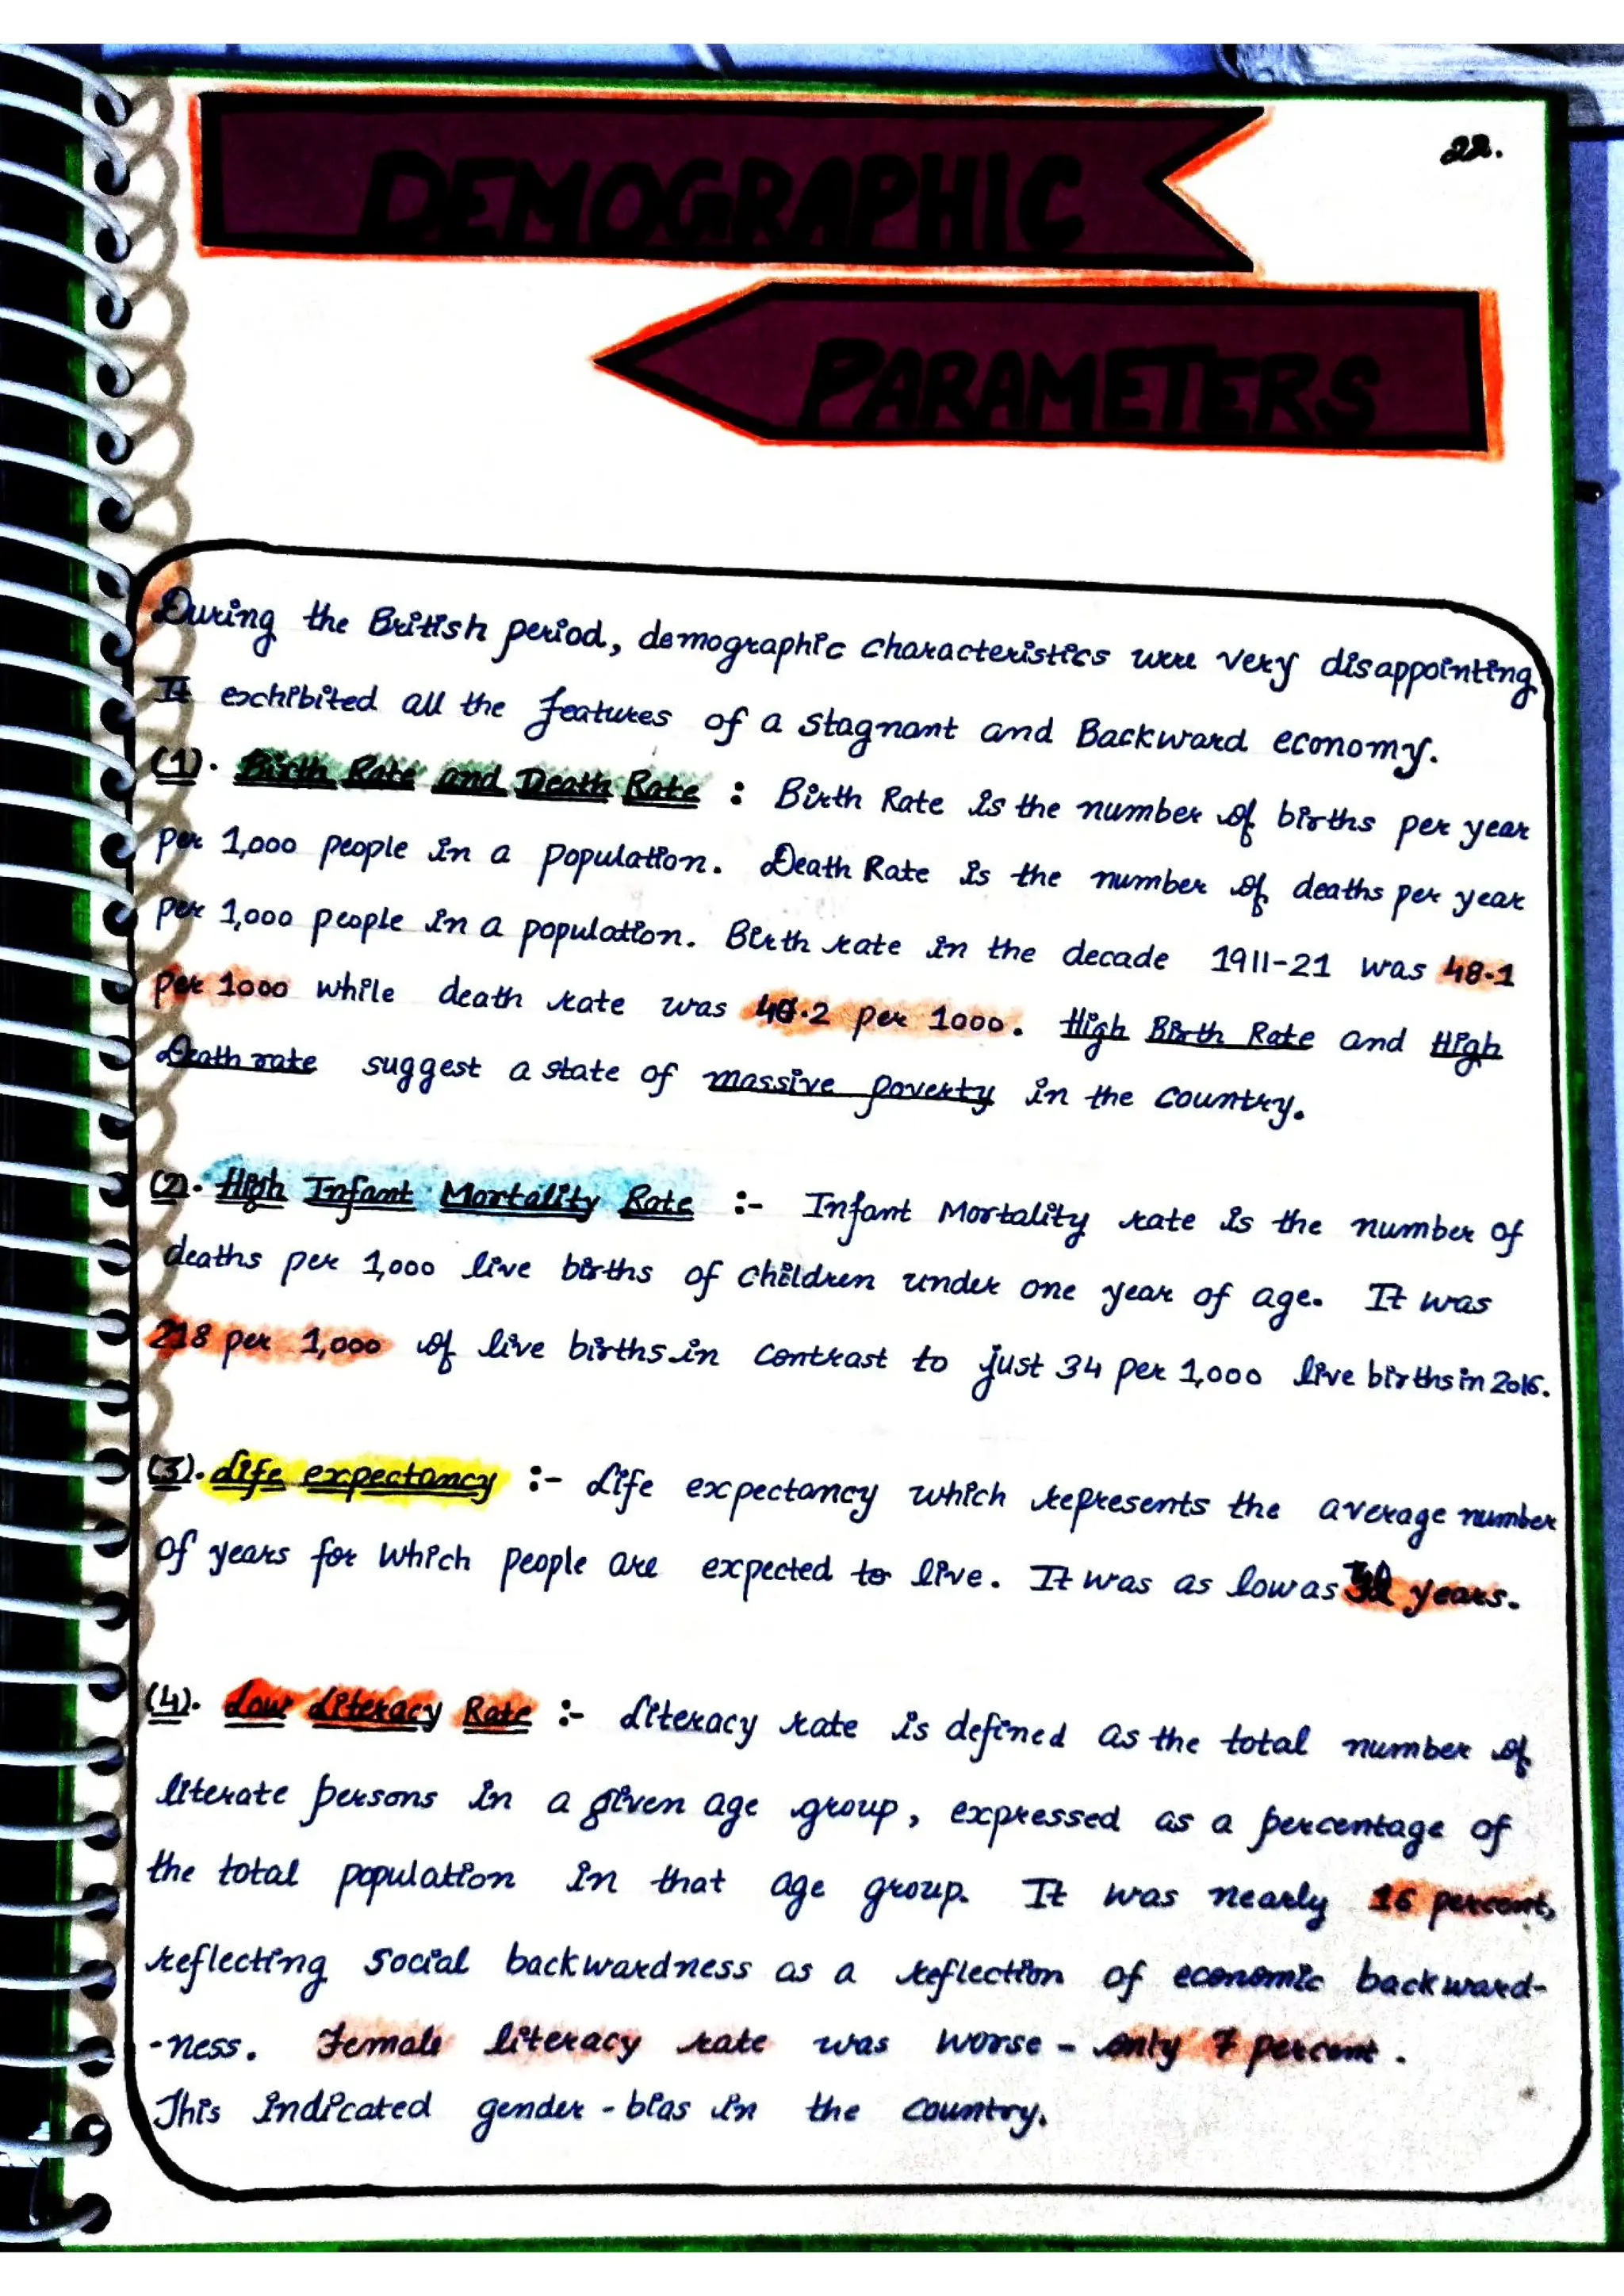 22.
DEMOGRAPHIC
PARAMETERS
During the British period, demographic characteristics were very disappointing
It exhibited all the features of a stagnant and Backward economy.
(1). Birth Rate and Death Rate : Birth Rate is the number of births per year
per 1,000 people in a population. Death Rate is the number of deaths per year
per 1,000 people in a population. Birth rate in the decade 1911-21 was 48.1
per 1000 while death rate was per 1000. High Birth Rate and High
Death rate suggest a state of massive poverty in the country.
(2). High Infant Mortality Rate :- Infant Mortality rate is the number of
deaths per 1,000 live births of children under one year of age. It was
218 per 1,000 of live births in contrast to just 34 per 1,000 live births in 2016.
(3). Life expectancy :- Life expectancy which represents the average number
of years for which people are expected to live. It was as low as years.
(4). Low Literacy Rate :- Literacy rate is defined as the total number of
literate persons in a given age group, expressed as a percentage of
the total population in that age group. It was nearly 16 percent,
reflecting social backwardness as a reflection of economic backward-
-ness. Female literacy rate was worse - only 7 percent.
This indicated gender - bias in the country.